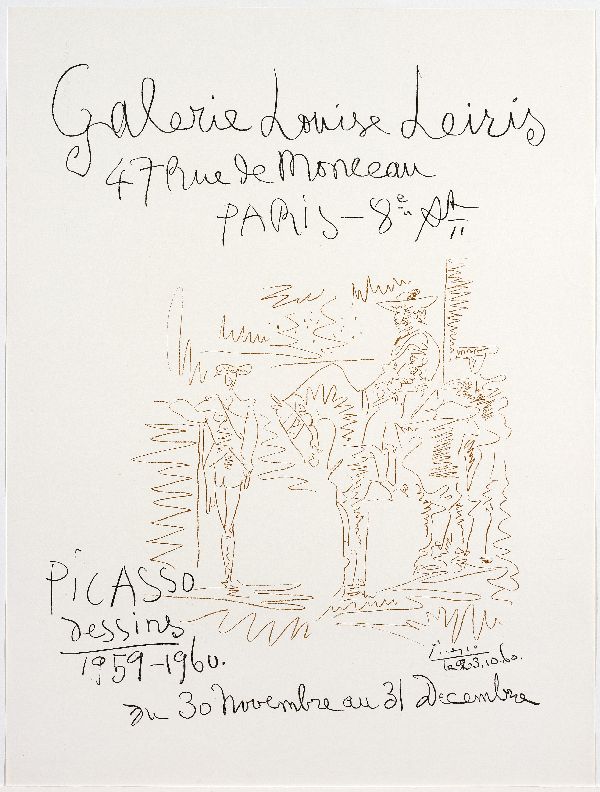 Galerie Louise Leiris
47 Rue de Monceau
PARIS - 8e
PiCASSO
dessins
1959-1960.
du 30 Novembre au 31 Decembre
Picasso
3.10.60.